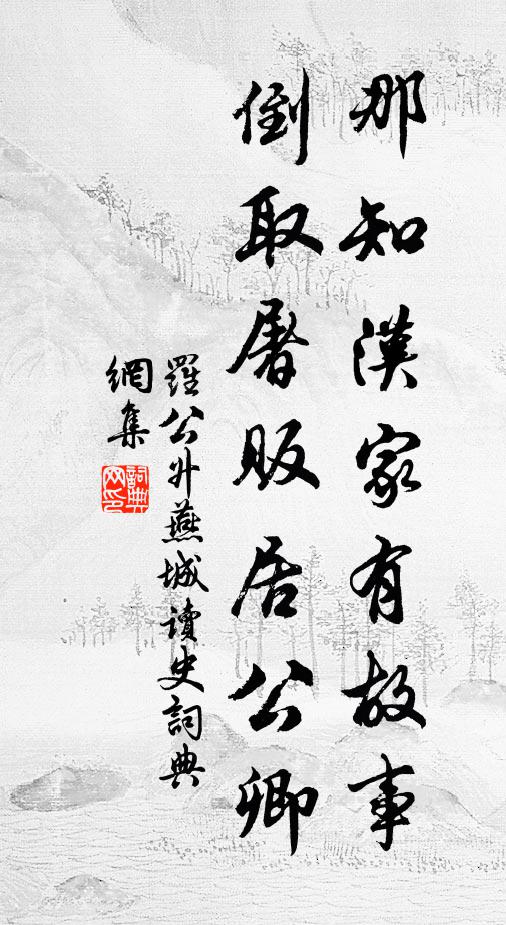 那知漢家有故事
倒取屠販居公卿
羅公升燕城讀史詞典
網集
詞典網印